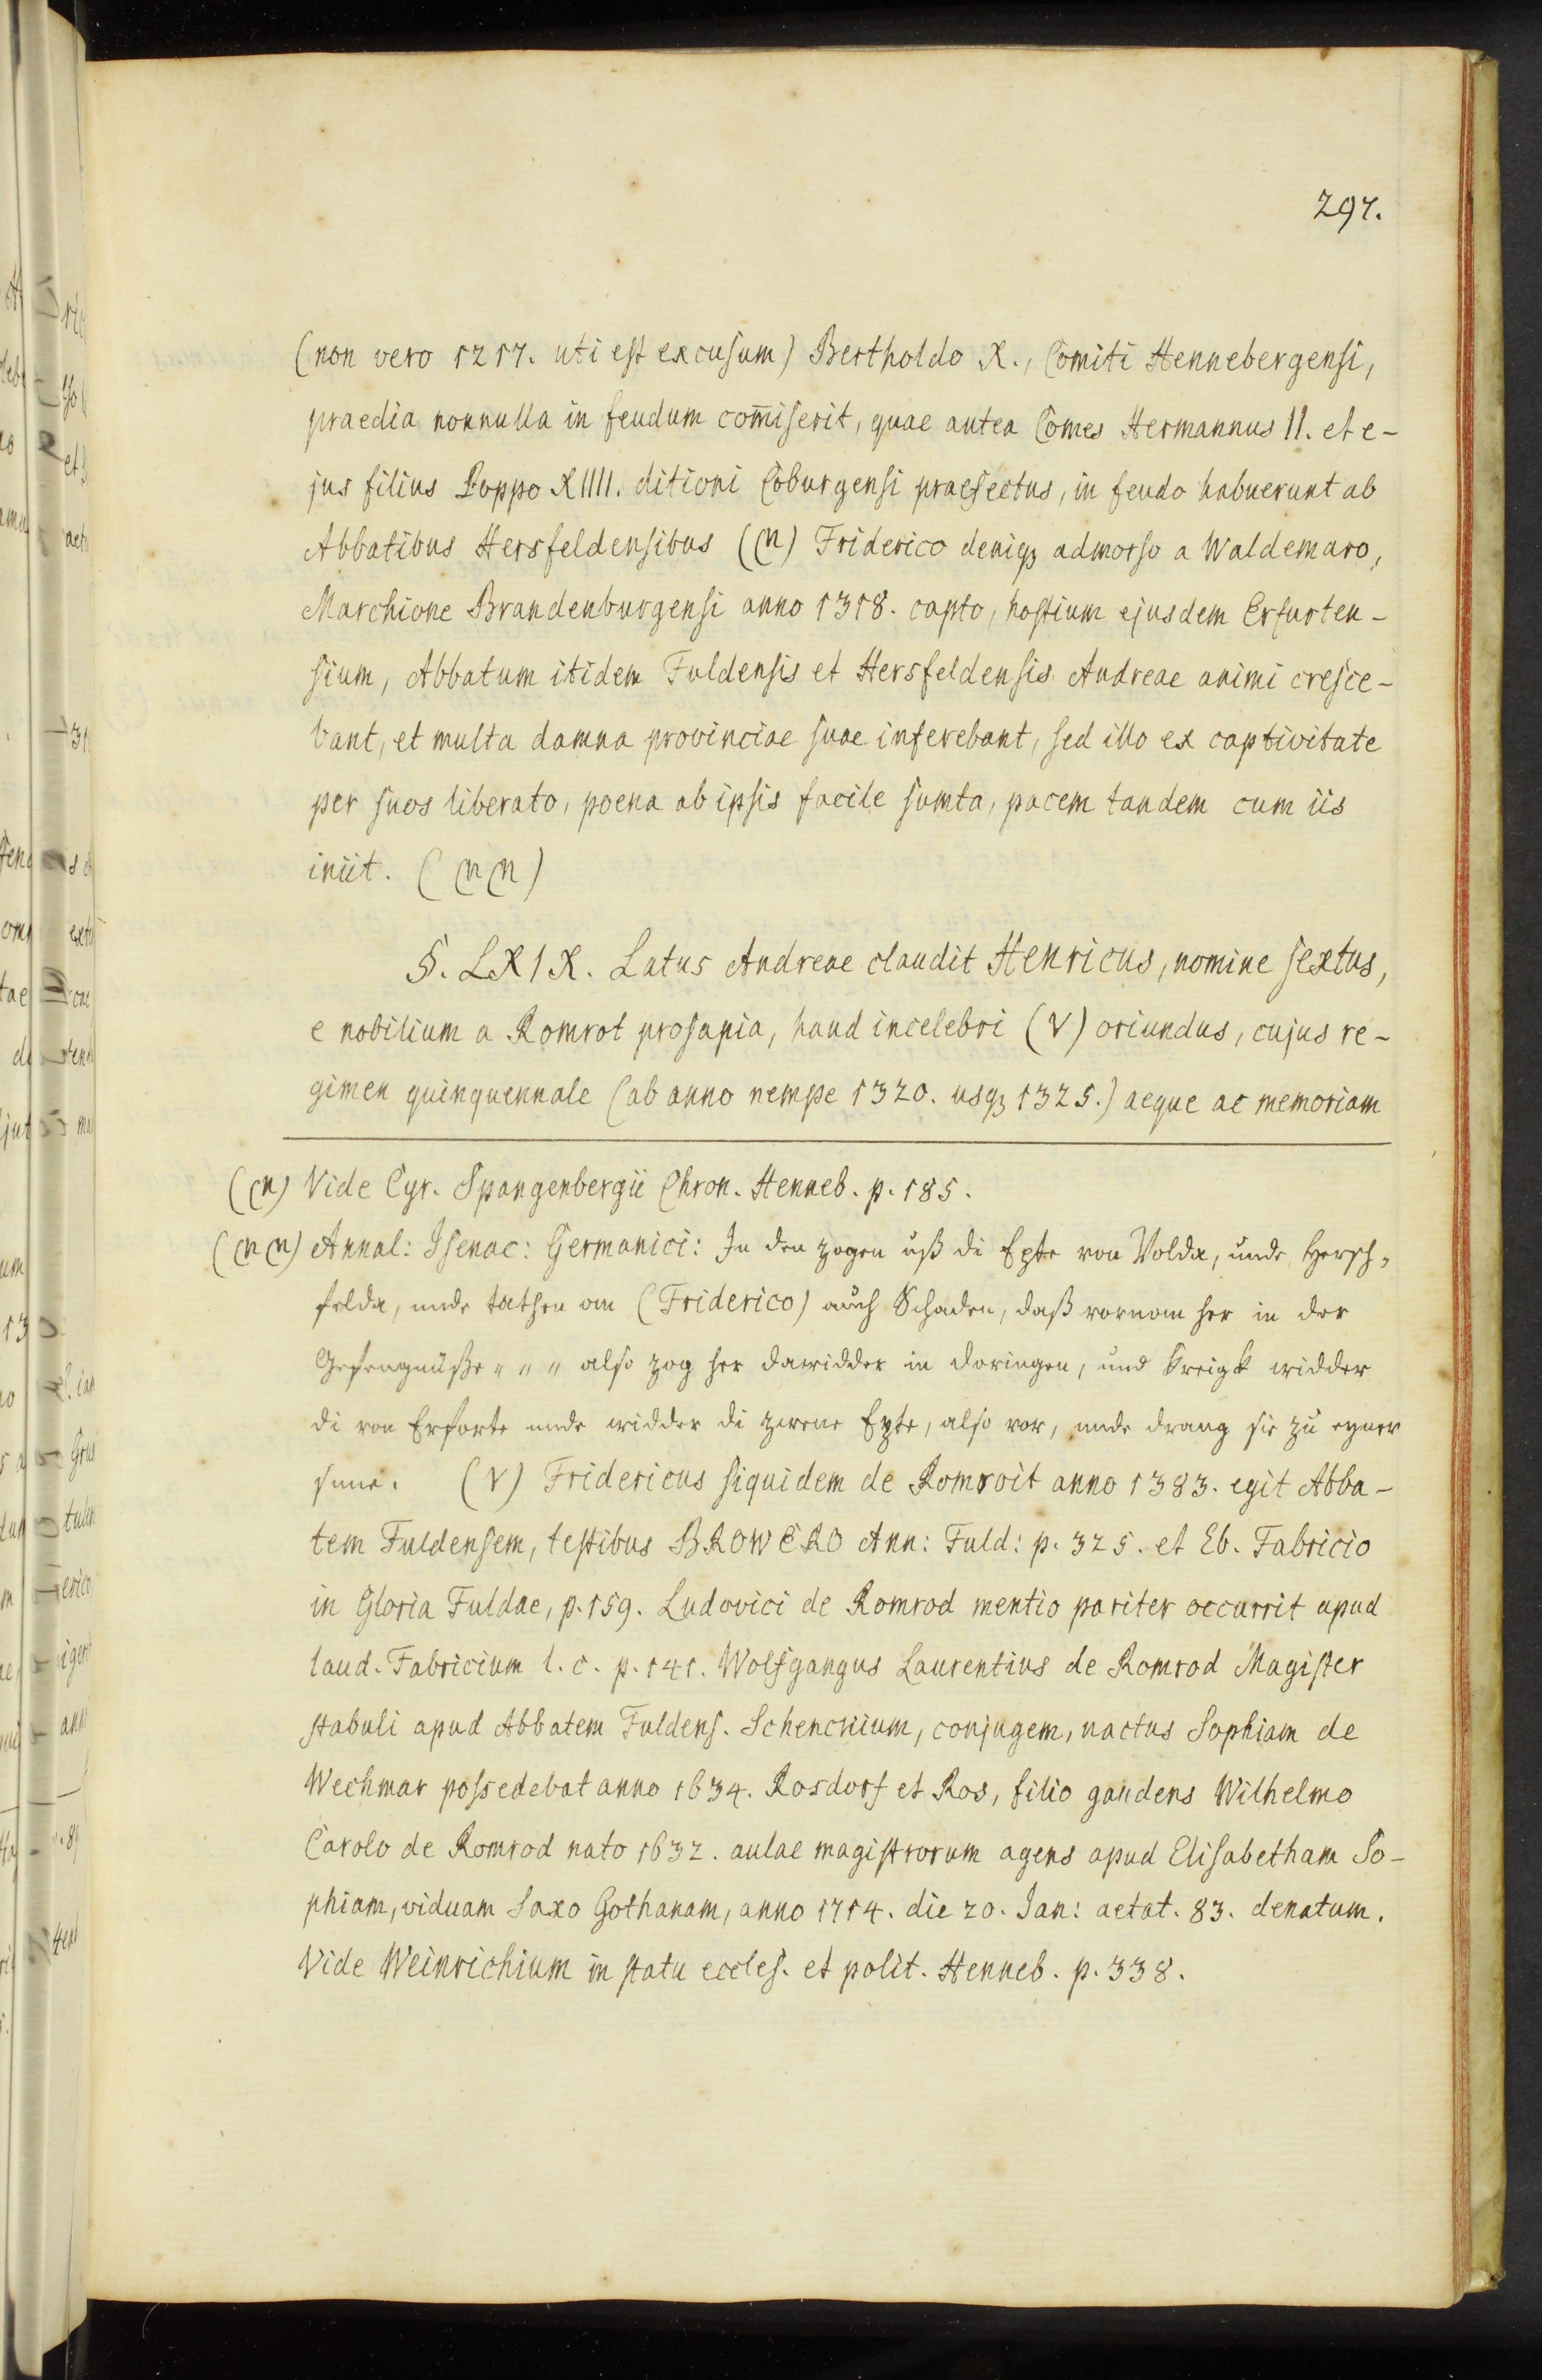 297.
(non vero 1217. uti est excusum) Bertholdo X., Comiti Hennebergensi,
praedia nonnulla in feudum com̄iserit, quae antea Comes Hermannus II. et e-
jus filius Poppo XIIII. ditioni Coburgensi praefectus, in feudo habuerunt ab
Abbatibus Hersfeldensibus (m) Friderico deniqꝫ admorso a Waldemaro,
Marchione Brandenburgensi anno 1318. capto, hostium ejusdem Erfurten-
sium, Abbatum itidem Fuldensis et Hersfeldensis Andreae animi cresce-
bant, et multa damna provinciae suae inferebant, sed illo ex captivitate
per suos liberato, poena ab ipsis facile sumta, pacem tandem cum iis
iniit. (mm)
§. LXIX. Latus Andreae claudit Henricus, nomine sextus,
e nobilium a Romrot prosapia, haud incelebri (v) oriundus, cujus re-
gimen quinquennale (ab anno nempe 1320. usqꝫ 1325.) aeque ac memoriam
(m) Vide Cyr. Spangenbergii Chron. Henneb. p. 185.
(mm) Annal: Isenac: Germanici: In den zogen uß di Epte von Volda, unde Hersch-
felda, unde tathen om (Friderico) auch Schaden, daß vornom her in der
Gefengnüße „ „ „ also zog her dawidder in doringen, und kreigk widder
di von Erforte unde widder di zwene Epte, also vor, unde drang sie zu eyner
sune. (v) Fridericus siquidem de Romroit anno 1383. egit Abba-
tem Fuldensem, testibus BROWERO Ann: Fuld: p. 325. et Eb. Fabricio
in Gloria Fuldae, p. 159. Ludovici de Romrod mentio pariter occurrit apud
laud. Fabricium l. c. p. 141. Wolfgangus Laurentius de Romrod Magister
stabuli apud Abbatem Fuldens. Schenckium, conjugem, nactus Sophiam de
Wechmar possedebat anno 1634. Rosdorf et Ros, filio gaudens Wilhelmo
Carolo de Romrod nato 1632. aulae magistrorum agens apud Elisabetham So-
phiam, viduam Saxo Gothanam, anno 1714. die 20. Jan: aetat. 83. denatum.
Vide Weinrichium in statu eccles. et polit. Henneb. p. 338.